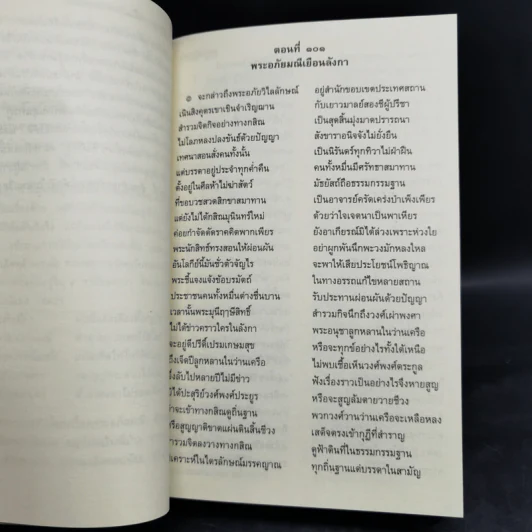 ตอนที่ ๑๐๑
พระอภัยมณีเยือนลังกา
๏ จะกล่าวถึงพระอภัยวิไลลักษณ์ อยู่สำนักขอบเขตประเทศสถาน
เนินสิงคุตรเขาเขินจำเริญฌาน กับเยาวมาลย์สองชีผู้ปรีชา
สำรวมจิตกิจอย่างทางกสิณ เป็นสุดสิ้นมุ่งมาดปรารถนา
ไม่โลภหลงปลงขันธ์ด้วยปัญญา สังขาราอนิจจังไม่ยั่งยืน
เทศนาสอนสั่งคนทั้งนั้น เป็นนิรันดร์ทุกทิวาไม่ฝ่าฝืน
แต่บรรดาอยู่ประจำทุกค่ำคืน คนทั้งหมื่นมีศรัทธาสมาทาน
ตั้งอยู่ในศีลห้าไม่ฆ่าสัตว์ มัธยัสถ์ถือธรรมกรรมฐาน
ที่ชอบวชสวดสิกขาสมาทาน เป็นอาจารย์ครัดเคร่งบำเพ็งเพียร
แต่ยังไม่ได้กสิณมุนินทร์ใหม่ ด้วยว่าใจเจตนาเป็นพาเหียร
ค่อยกำจัดตัดราคคิดพากเพียร ยังอาเกียรณ์มิได้ล่วงเพราะห่วงใย
พระนักสิทธ์ทรงสอนให้ผ่อนผัน อย่าผูกพันนึกพะวงมักหลงใหล
อันโลกีย์นี้มันชั่วตัวจัญไร จะพาให้เสียประโยชน์โพธิญาณ
พระชี้แจงแจ้งข้อบรมัตถ์ ในทางอรรถแก้ไขหลายสถาน
ประชาชนคนทั้งหมื่นต่างชื่นบาน รับประทานผ่อนผันด้วยปัญญา
เวลานั้นพระมุนีฤๅษีสิทธิ์ สำรวมกิจนึกถึงวงศ์เผ่าพงศา
ไม่ได้ข่าวคราวใครในลังกา พระอนุชาลูกหลานในว่านเครือ
จะอยู่ดีปรีดิ์เปรมเกษมสุข หรือจะทุกข์อย่างไรทั้งใต้เหนือ
ถึงเจ็ดปีลูกหลานในว่านเครือ ไม่พบเชื้อเห็นวงศ์พงศ์ตระกูล
ลับไปหลายปีไม่มีข่าว ฟังเรื่องราวเป็นอย่างไรจึงหายสูญ
ได้ปะสุริย์วงศ์พงศ์ประยูร หรือจะสูญล้มตายวายชีวง
จะเข้าทางกสิณดูถิ่นฐาน พวกวงศ์วานว่านเครือจะเหลือหลง
หรือสูญญาติขาดแผ่นดินสิ้นชีวง เสด็จตรงเข้ากุฎีที่สำราญ
สำรวมจิตลงวางทางกสิณ ดูฟ้าดินที่ในธรรมกรรมฐาน
วิเคราะห์ในไตรลักษณ์มรรคญาณ ทุกถิ่นฐานแต่บรรดาในสามัญ